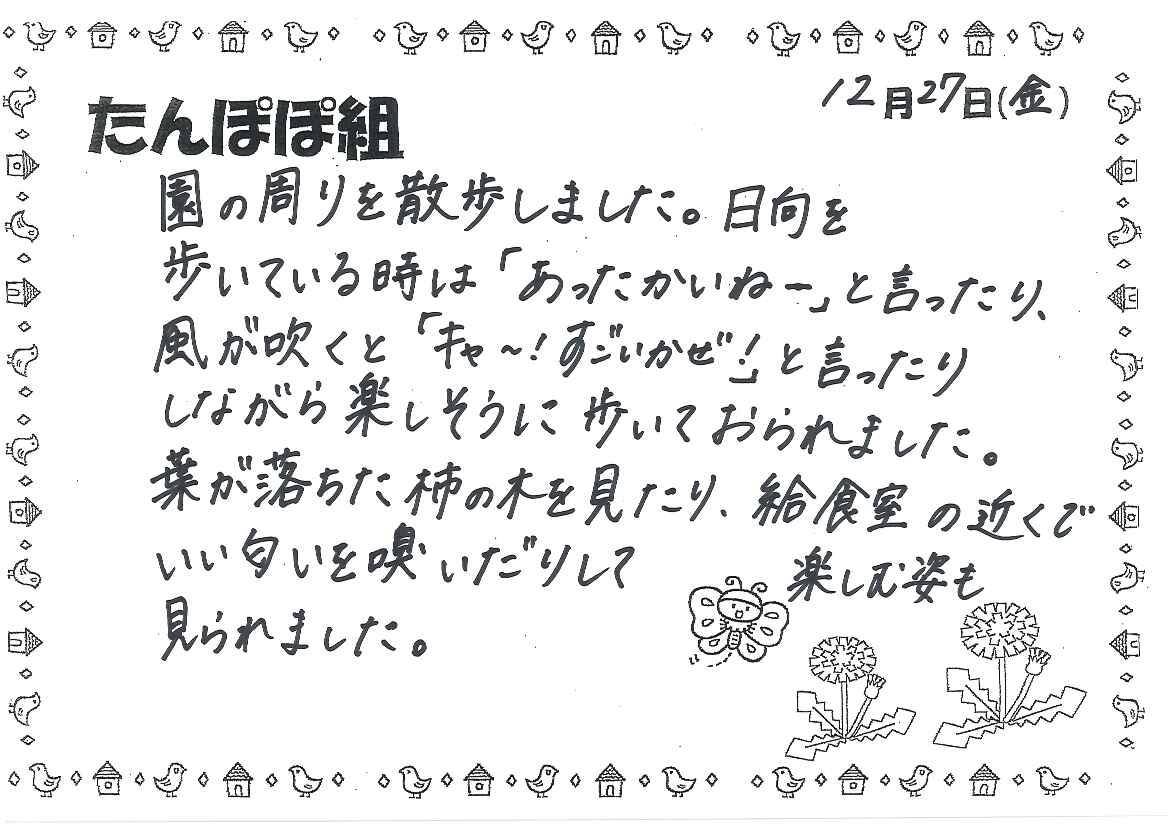 12月27日(金)
たんぽぽ組
園の周りを散歩しました。日向を
歩いている時は「あったかいねー」と言ったり、
風が吹くと「キャ～!すごいかぜ!」と言ったり
しながら楽しそうに歩いておられました。
葉が落ちた柿の木を見たり、給食室の近くで
いい匂いを嗅いだりして楽しむ姿も
見られました。